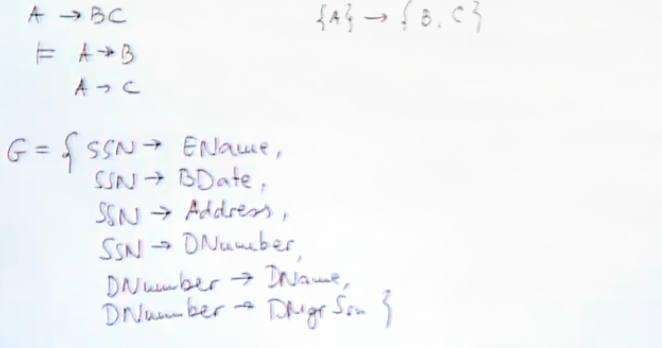 A → BC
{A} → {B, C}
⊨ A → B
A → C
G = { SSN → EName,
SSN → BDate,
SSN → Address,
SSN → DNumber,
DNumber → DName,
DNumber → DMgrSsn }